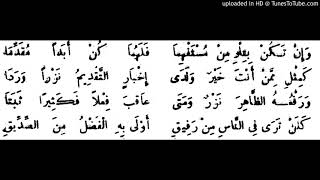 uploaded in HD @ TunesToTube.com
وَإِنْ تَكُنْ بِتِلْوِ مِنْ مُسْتَفْهِمَا فَلَهُمَا كُنْ أَبَداً مُقَدِّمَا
كَمِثْلِ مِمَّنْ أَنْتَ خَيْرٌ وَلَدَى إِخْبَارٍ التَّقْدِيمُ نَزْراً وَرَدَا
وَرَفْعُهُ الظَّاهِرَ نَزْرٌ وَمَتَى عَاقَبَ فِعْلاً فَكَثِيرًا ثَبَتَا
كَلَنْ تَرَى فِي النَّاسِ مِنْ رَفِيقِ أَوْلَى بِهِ الْفَضْلُ مِنَ الصِّدِّيقِ